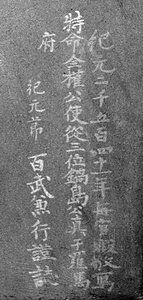 紀元二千五百四十一年在官暇敬寫
特命全權公使從三位鍋島公真于羅馬
府
紀元節
百武兼行謹誌